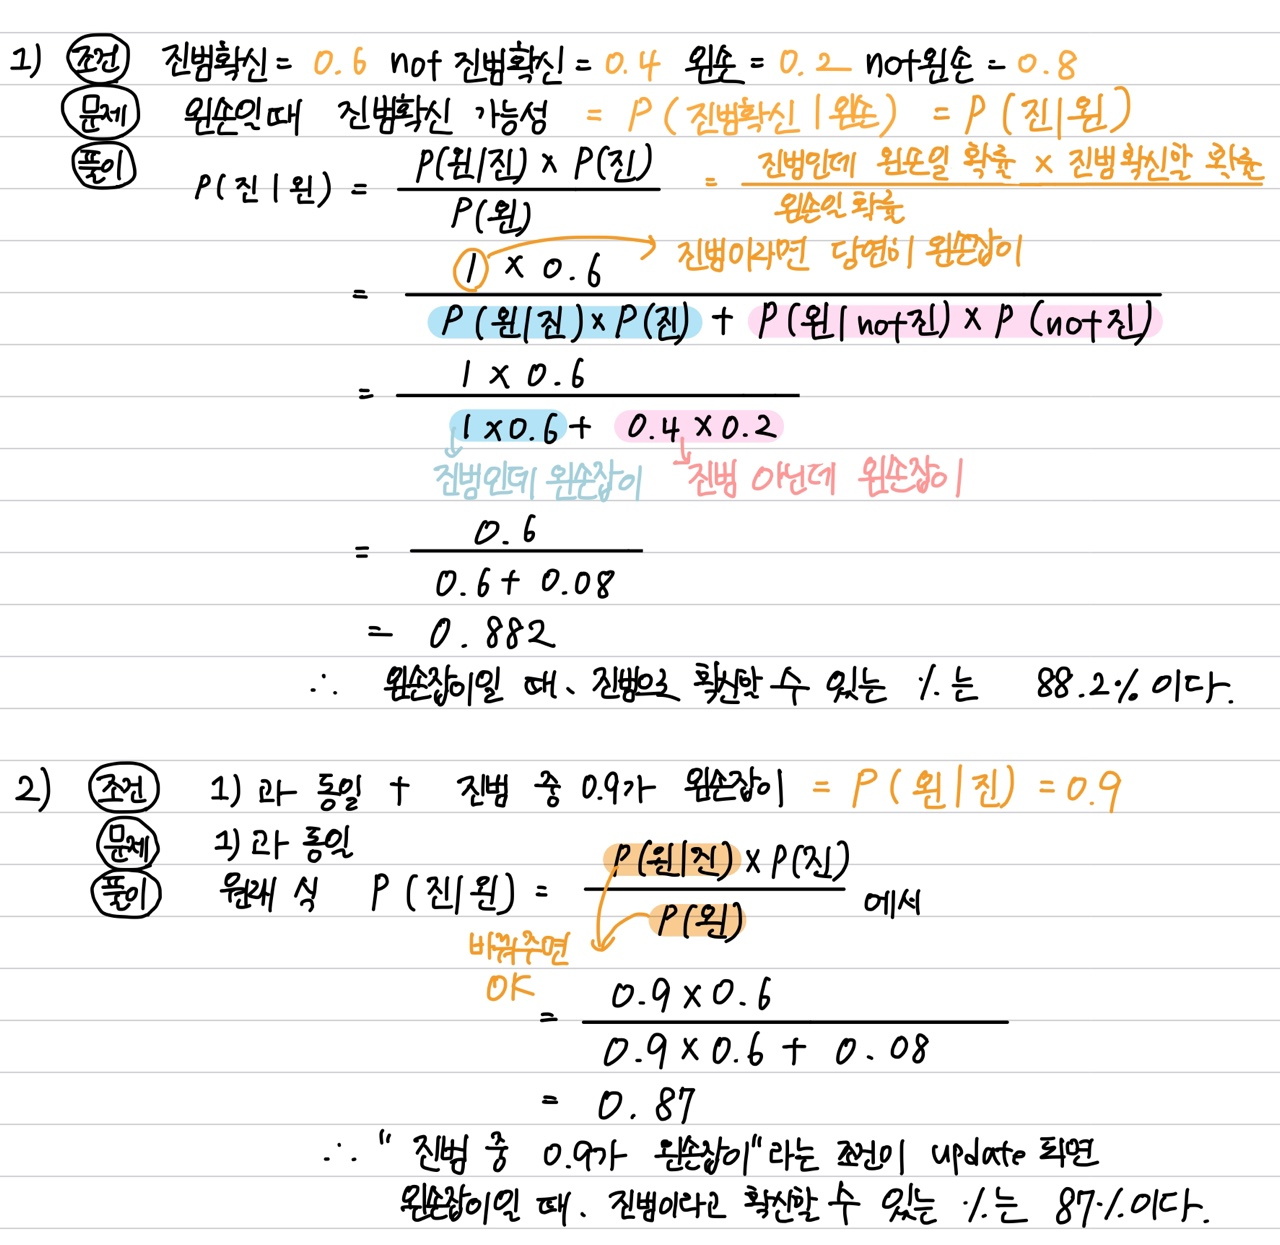 1) 조건 진범확신 = 0.6 not 진범확신 = 0.4 왼손 = 0.2 not왼손 = 0.8
문제 왼손일때 진범확신 가능성 = P(진범확신 | 왼손) = P(진|왼)
풀이 P(진|왼) = P(왼|진) × P(진) / P(왼) = 진범인데 왼손일 확률 × 진범확신할 확률 / 왼손일 확률
= 1 × 0.6 → 진범이라면 당연히 왼손잡이
P(왼|진) × P(진) + P(왼|not진) × P(not진)
= 1 × 0.6
1 × 0.6 + 0.4 × 0.2
진범인데 왼손잡이 진범 아닌데 왼손잡이
= 0.6
0.6 + 0.08
= 0.882
∴ 왼손잡이일 때, 진범으로 확신할 수 있는 %는 88.2%이다.
2) 조건 1)과 동일 + 진범 중 0.9가 왼손잡이 = P(왼|진) = 0.9
문제 1)과 동일
풀이 원래 식 P(진|왼) = P(왼|진) × P(진) / P(왼) 에서
바꿔주면
OK
= 0.9 × 0.6
0.9 × 0.6 + 0.08
= 0.87
∴ "진범 중 0.9가 왼손잡이"라는 조건이 update 되면
왼손잡이일 때, 진범이라고 확신할 수 있는 %는 87%이다.